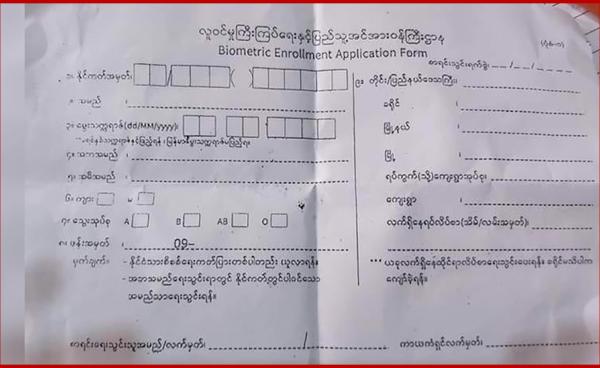 လူဝင်မှုကြီးကြပ်ရေးနှင့်ပြည်သူ့အင်အားဝန်ကြီးဌာန
Biometric Enrollment Application Form
(ပုံစံ-က)
စာရင်းသွင်းရက်စွဲ၊ __/__/__
၁။ နိုင်ငံကတ်အမှတ်၊ / ( )
၂။ အမည် ၊
၃။ မွေးသက္ကရာဇ်(dd/MM/yyyy)၊
၄။ အဘအမည် ၊
၅။ အမိအမည် ၊
၆။ ကျား မ
၇။ သွေးအုပ်စု A B AB O
၈။ ဖုန်းအမှတ် ၊ 09-
မှတ်ချက်။ - နိုင်ငံသားစိစစ်ရေးကတ်ပြားတစ်ပါတည်း ယူလာရန်။
- အဘအမည်ရေးသွင်းရာတွင် နိုင်ငံကတ်တွင်ပါဝင်သော
အမည်သာရေးသွင်းရန်။
၉။ တိုင်း/ပြည်နယ်ဒေသကြီး၊
ခရိုင် ၊
မြို့နယ် ၊
မြို့ ၊
ရပ်ကွက်(သို့)ကျေးရွာအုပ်စု၊
ကျေးရွာ ၊
လက်ရှိနေရပ်လိပ်စာ(အိမ်/လမ်းအမှတ်)၊
*** ယခုလက်ရှိနေထိုင်ရာလိပ်စာရေးသွင်းပေးရန်။ ခရိုင်မသိပါက
ကျော်ခဲ့ရန်။
စာရင်းရေးသွင်းသူအမည်/လက်မှတ်၊ /
ကာယကံရှင်လက်မှတ်၊